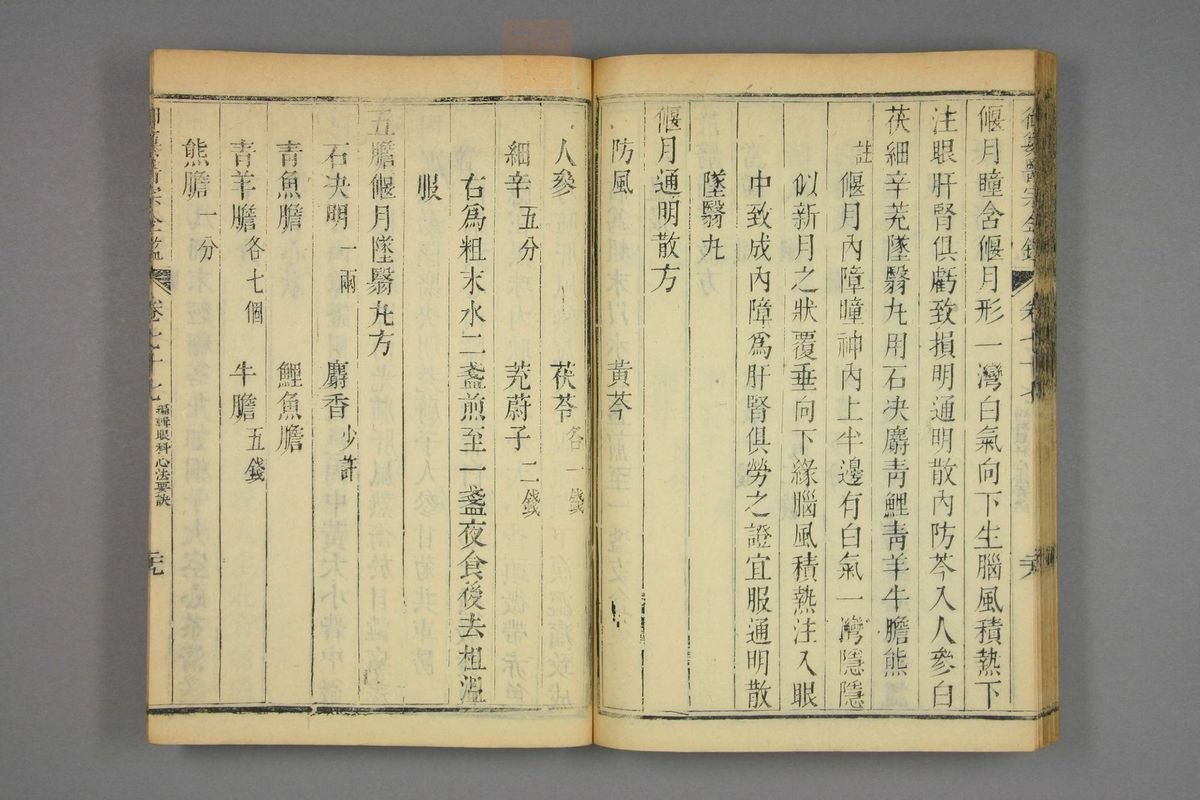 御纂醫宗金鑑 卷七十七
偃月瞳含偃月形一灣白氣向下生腦風積熱下
注眼肝腎俱虧致損明通明散內防芩入人參白
茯細辛茺墜翳丸用石决麝青鯉靑羊牛膽熊
註
偃月內障瞳神內上半邊有白氣一灣隱隱
似新月之狀覆垂向下緣腦風積熱注入眼
中致成內障爲肝腎俱勞之證宜服通明散
墜翳丸
偃月通明散方
防風 黃芩
人參 茯苓各一錢
細辛五分 茺蔚子二錢
右爲粗末水二盞煎至一盞夜食後去柤溫
服
五膽偃月墜翳丸方
石决明一兩 麝香少許
青魚膽 鯉魚膽
青羊膽各七個 牛膽五錢
熊膽一分
編輯眼科心法要訣